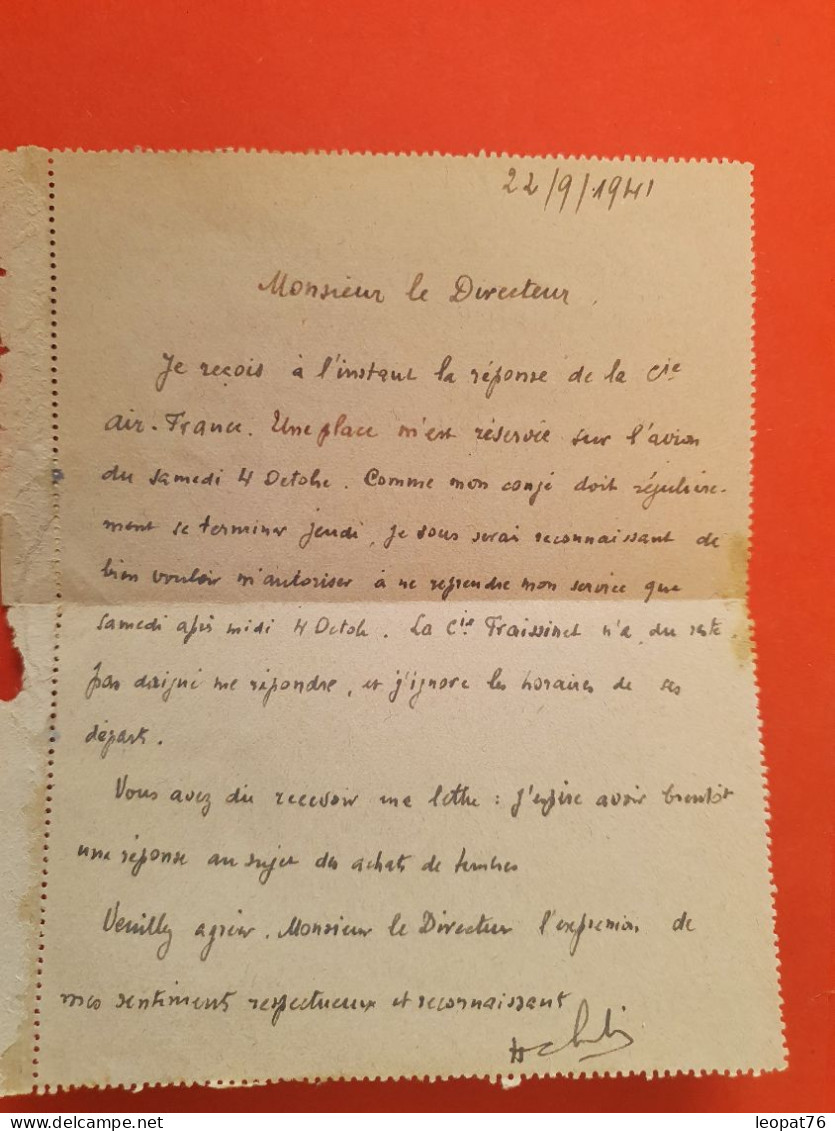 22/9/1941
Monsieur le Directeur,
Je reçois à l'instant la réponse de la Cie
Air-France. Une place m'est réservée sur l'avion
du samedi 4 Octobre. Comme mon congé doit régulière-
ment se terminer jeudi, je vous serai reconnaissant de
bien vouloir m'autoriser à ne reprendre mon service que
samedi après midi 4 Octobre. La Cie Fraissinet n'a, du reste
pas daigné me répondre, et j'ignore les horaires de ses
départs.
Vous avez du recevoir ma lettre : j'espère avoir bientôt
une réponse au sujet des achats de timbres
Veuillez agréer, Monsieur le Directeur l'expression de
mes sentiments respectueux et reconnaissant
leopat76